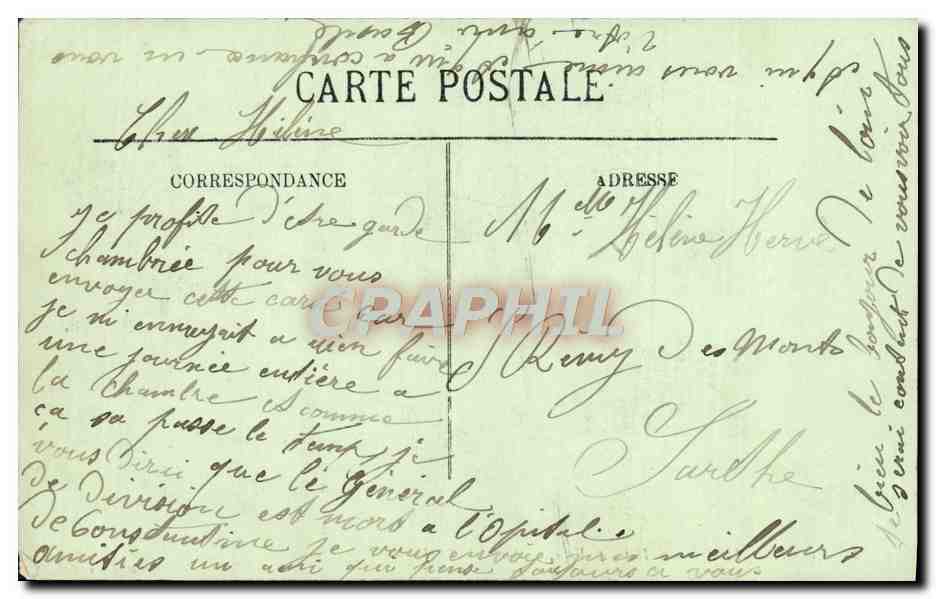 CARTE POSTALE
Cher Hélène
CORRESPONDANCE
je profite d'etre garde
chambrée pour vous
envoyer cette carte car
je mi ennuyait a rien faire
une journée entière a
la chambre et comme
ça sa passe le temp je
vous dirai que le Général
de division est mort a l'Opital
de Constantine je vous envoye mes meilleurs
amitiés un ami qui pense toujours a vous
et qui vous aime et qui a confiance en vous
Votre ami
ADRESSE
Melle Hélène Hervé
St Remy des Monts
Sarthe
bien le bonjour de loin
serai content de vous voir tous
CPAPHIL